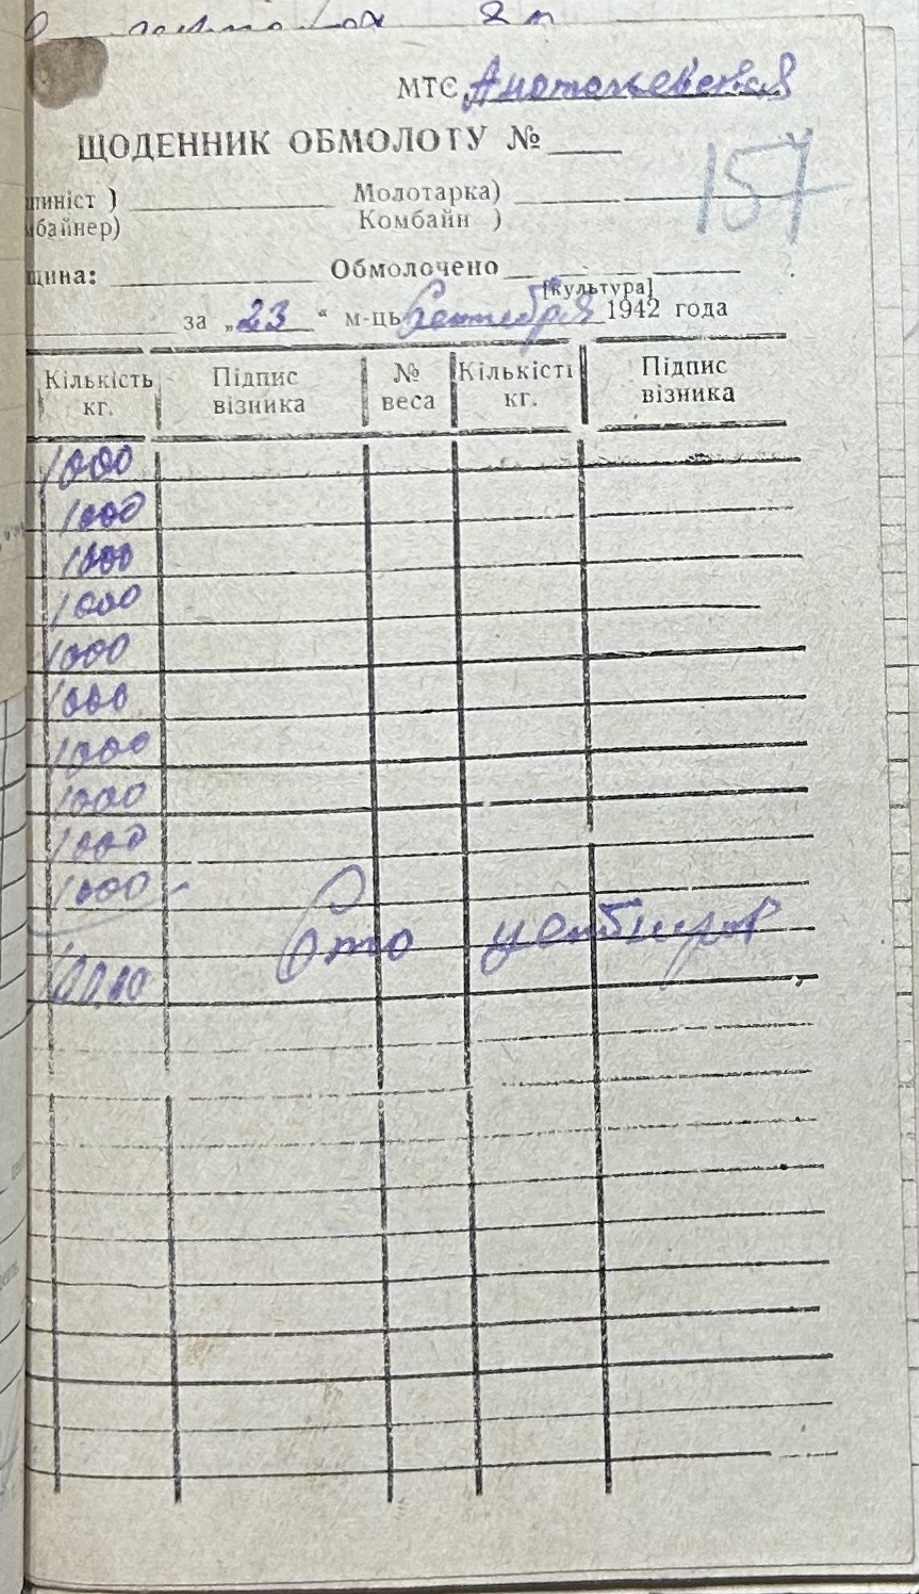 МТС Анатольевская
ЩОДЕННИК ОБМОЛОТУ № ____
157
шиніст ) Молотарка)
мбайнер) Комбайн )
щина: Обмолочено
[культура]
за „23“ м-ць Сентебря 1942 года
Кількість кг. Підпис візника № веса Кількісті кг. Підпис візника
1000
1000
1000
1000
1000
1000
1000
1000
1000
1000
Сто центнира